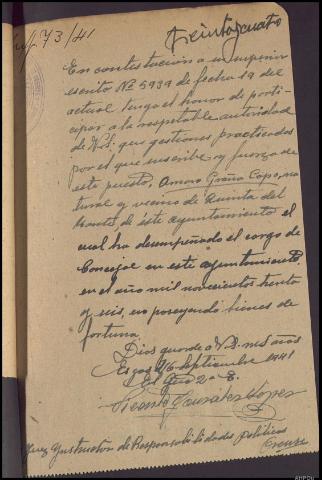 73/41
Treintaycuatro
En contestación a su superior
escrito Nº 5939 de fecha 19 del
actual tengo el honor de parti-
cipar a la respetable autoridad
de V.S. que gestiones practicadas
por el que suscribe y fuerza de
este puesto, Amaro Graña Capo, na-
tural y vecino de Quinta del
Monte, de éste ayuntamiento el
cual ha desempeñado el cargo de
Concejal en este ayuntamiento,
en el año mil novecientos treinta
y seis, no poseyendo bienes de
fortuna.
Dios guarde a V.S. ms años
Esgos 26 Septiembre 1941
El Gua 2º E.
Vicente Gonzalez López
Juez Ynstructor de Responsabilidades políticas
Orense
AHPOu